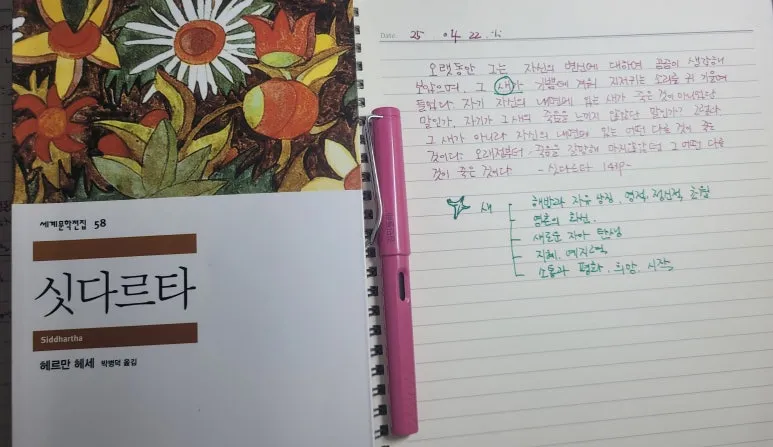 세계문학전집 58
싯다르타
Siddhartha
헤르만 헤세 박병덕 옮김
Date. 25 04. 22.
오랫동안 그는 자신의 변신에 대하여 곰곰이 생각해
보았으며, 그 새가 기쁨에 겨워 지저귀는 소리를 귀 기울여
들었다. 자기 자신의 내면에 있는 새가 죽은 것이 아니었단
말인가, 자기가 그 새의 죽음을 느끼지 않았단 말인가?
그 새가 아니라 자신의 내면에 있는 어떤 다른 것이 죽은
것이다. 오래전부터 죽음을 갈망해 마지않았던 그 어떤 다른
것이 죽은 것이다 - 싯다르타 144p-
새
해방과 자유 상징. 영적, 정신적, 초월
영혼의 화신.
새로운 자아 탄생
지혜, 메신저
소통과 평화. 희망. 시작